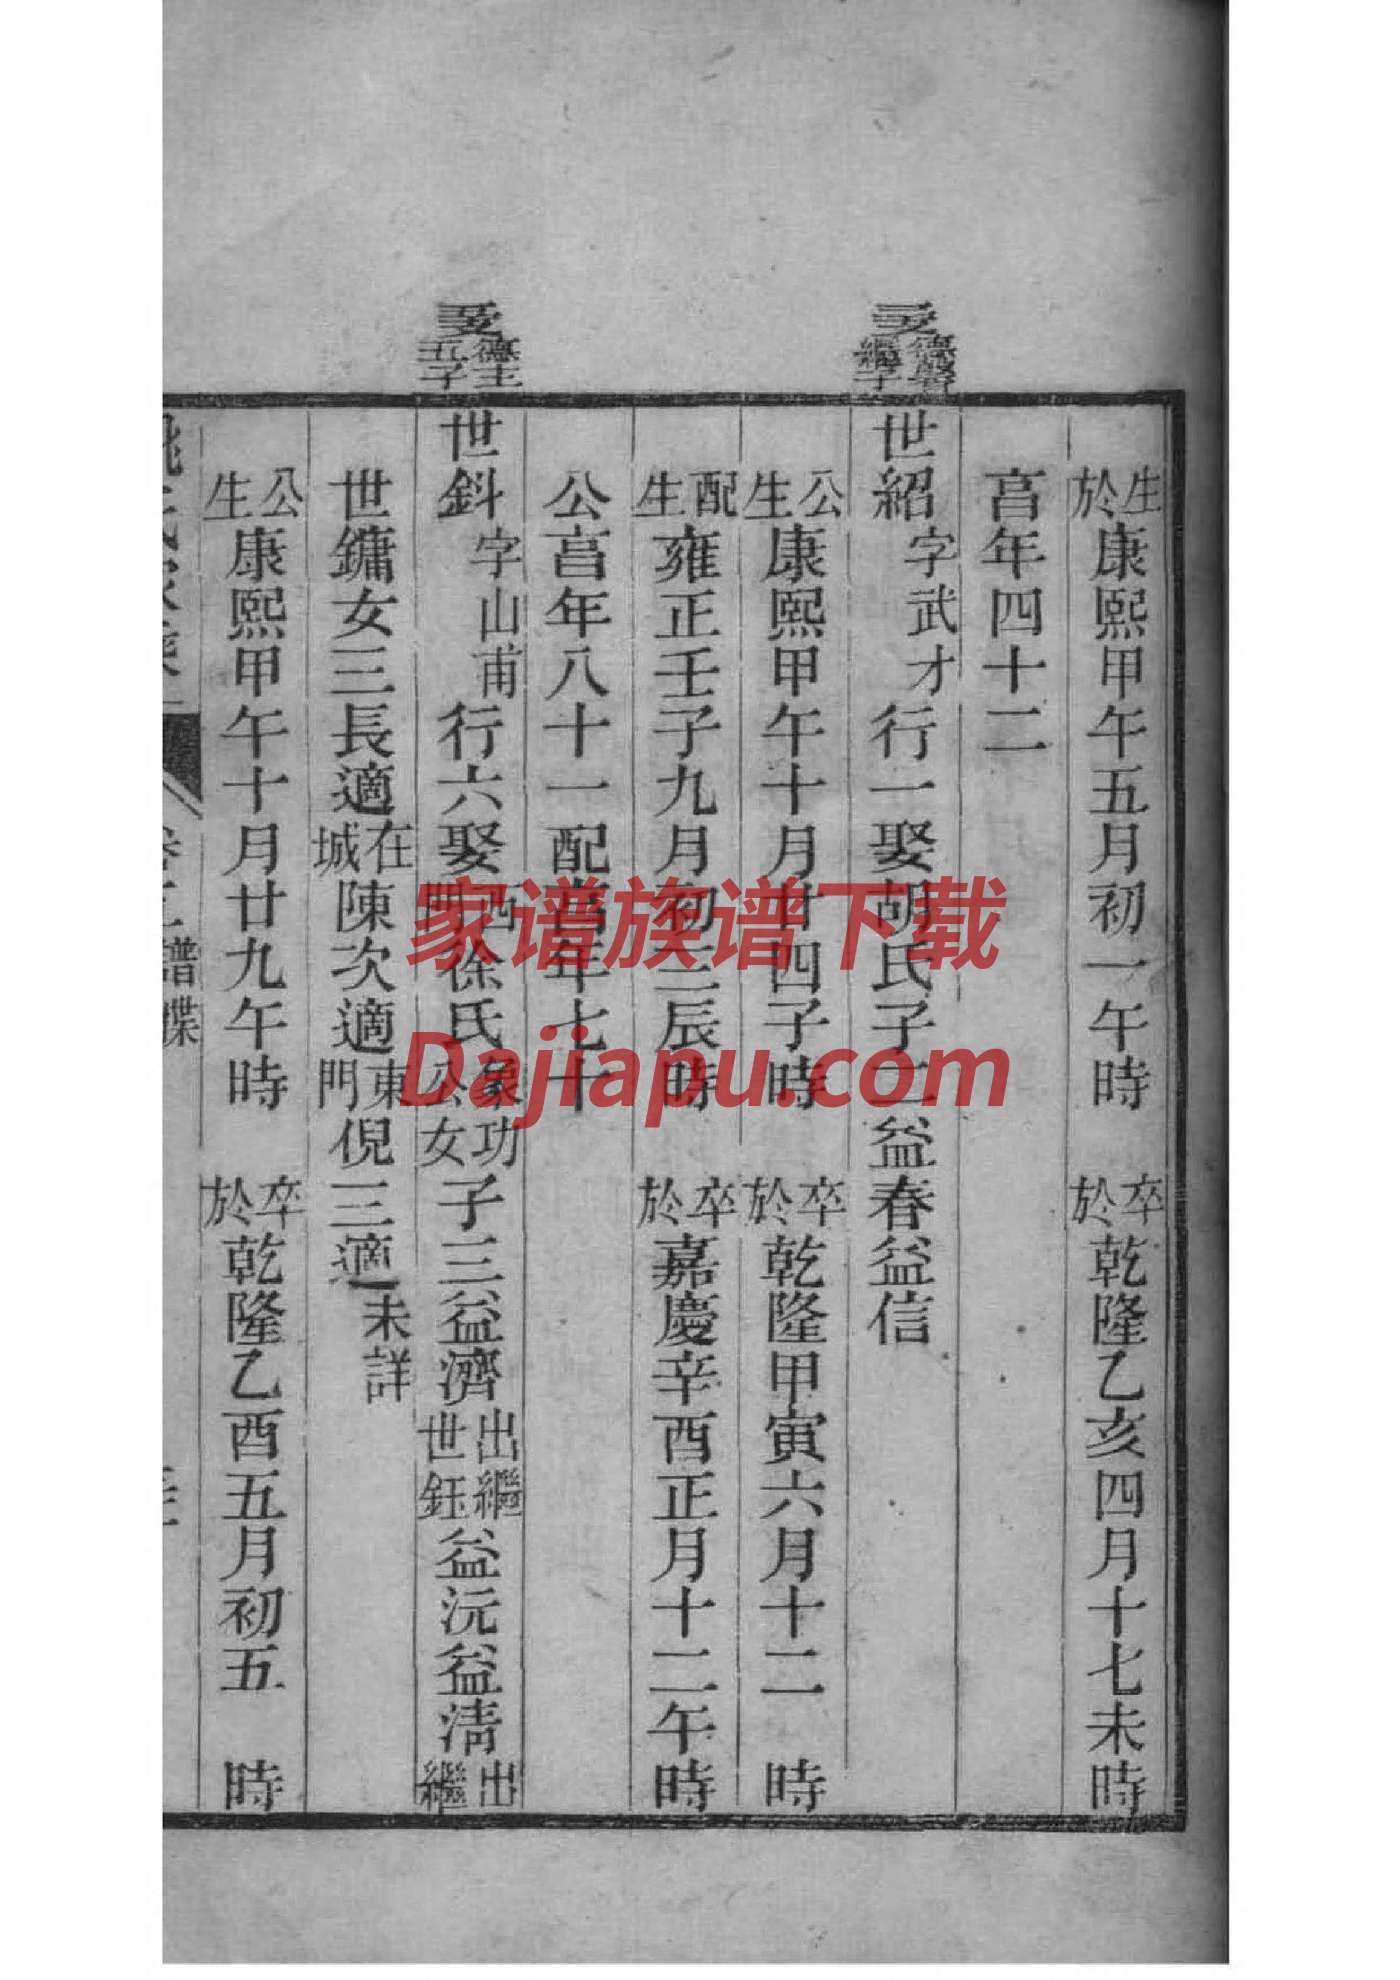 生於康熙甲午五月初一午時　卒於乾隆乙亥四月十七未時
亯年四十二
德馨繼子
世紹字武才行一娶胡氏子二益春益信
公生康熙甲午十月廿四子時　卒於乾隆甲寅六月十二　時
配生雍正壬子九月初三辰時　卒於嘉慶辛酉正月十二午時
公亯年八十一配亯年七十
德主五子
世鈄字山甫行六娶西門徐氏象功公女子三益濟出繼世鈺益沅益淸出繼
世鏞女三長適在城陳次適東門倪三適未詳
公生康熙甲午十月廿九午時　卒於乾隆乙酉五月初五　時
譜牒
家谱族谱下载
Dajiapu.com